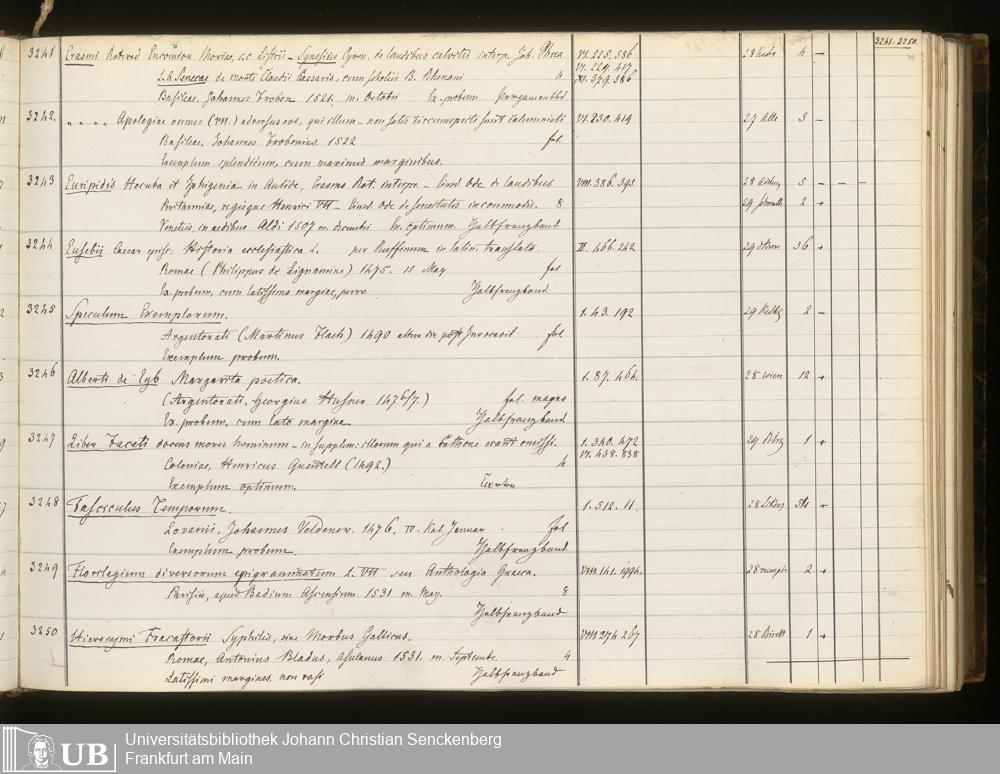 3241-3250.
3241 Erasmi Roterod Encomion Morias, s.c. Listrii - Synesius Cyren. de laudibus calvitii interpr. Joh. Phrea VI. 225. 386 28 4 -
L.A. Senecae de morte Claudii Caesaris, cum scholiis B. Rhenani 4 VI. 229. 417
Basileae, Johannes Froben 1521. m. Octobri Ex. probum Pergamentbd XI. 379. 386
3242. " " " " Apologiae omnes (VII.) adversus eos, qui illum - non satis circumspecti sunt calumniati VI. 230. 419 27 3 -
Basileae, Johannes Frobenius. 1522 fol.
Exemplum splendidum, cum maximis marginibus.
3243 Euripidis Hecuba et Iphigenia in Aulide, Erasmo Rot. interpr. - Eiusd. Ode de laudibus VIII. 386. 393 28 5 - - -
Britanniae, regisque Henrici VII - Eiusd. Ode de senectutis incommodis. 8 29 2 +
Venetiis, in aedibus Aldi 1507 m. decembri Ex. optimum. Halbfranzband
3244 Eusebii Caesar. episc. Historia ecclesiastica L. per Ruffinum in latin. translata II. 466. 242 29 Stern 36 +
Romae (Philippus de Lignamine) 1475. 15 May fol
Ex. probum, cum latissimo margine, Halbfranzband.
3245 Speculum Exemplorum. 1. 43. 192 29 2 -
Argentorati (Martinus Flach) 1490 altera die post Invocavit fol
Exemplum probum.
3246 Alberti de Eyb Margarita poetica. 1. 87. 464. 28 Wien 12 +
(Argentorati, Georgius Husner 1476/7.) fol. magno
Ex. probum, cum lato margine Halbfranzband
3247 Liber Faceti docens mores hominum - in supplem: illorum qui a Cathone erant omissi. 1. 340. 472 29 1 +
Coloniae, Henricus Quentell (1492.) 4 VI. 438. 838
Exemplum optimum. Carton
3248 Fasciculus Temporum. 1. 512. 11. 28 +
Lovanii, Johannes Veldener. 1476. IV. Kal Januar. fol
Exemplum probum. Halbfranzband
3249 Florilegium diversorum epigrammatum L. VII seu Anthologia Graeca. VIII. 141. 1994. 28 2 +
Parisiis, apud Badium Ascensium 1531 m. May. 8
Halbfranzband
3250 Hieronymi Fracastorii Syphilis, sive Morbus Gallicus. VIII. 274. 267 28 1 +
Romae, Antonius Bladus, Asulanus 1531. m. Septembr. 4
Latissimi margines, non rasi Halbfranzband
UB Universitätsbibliothek Johann Christian Senckenberg
Frankfurt am Main